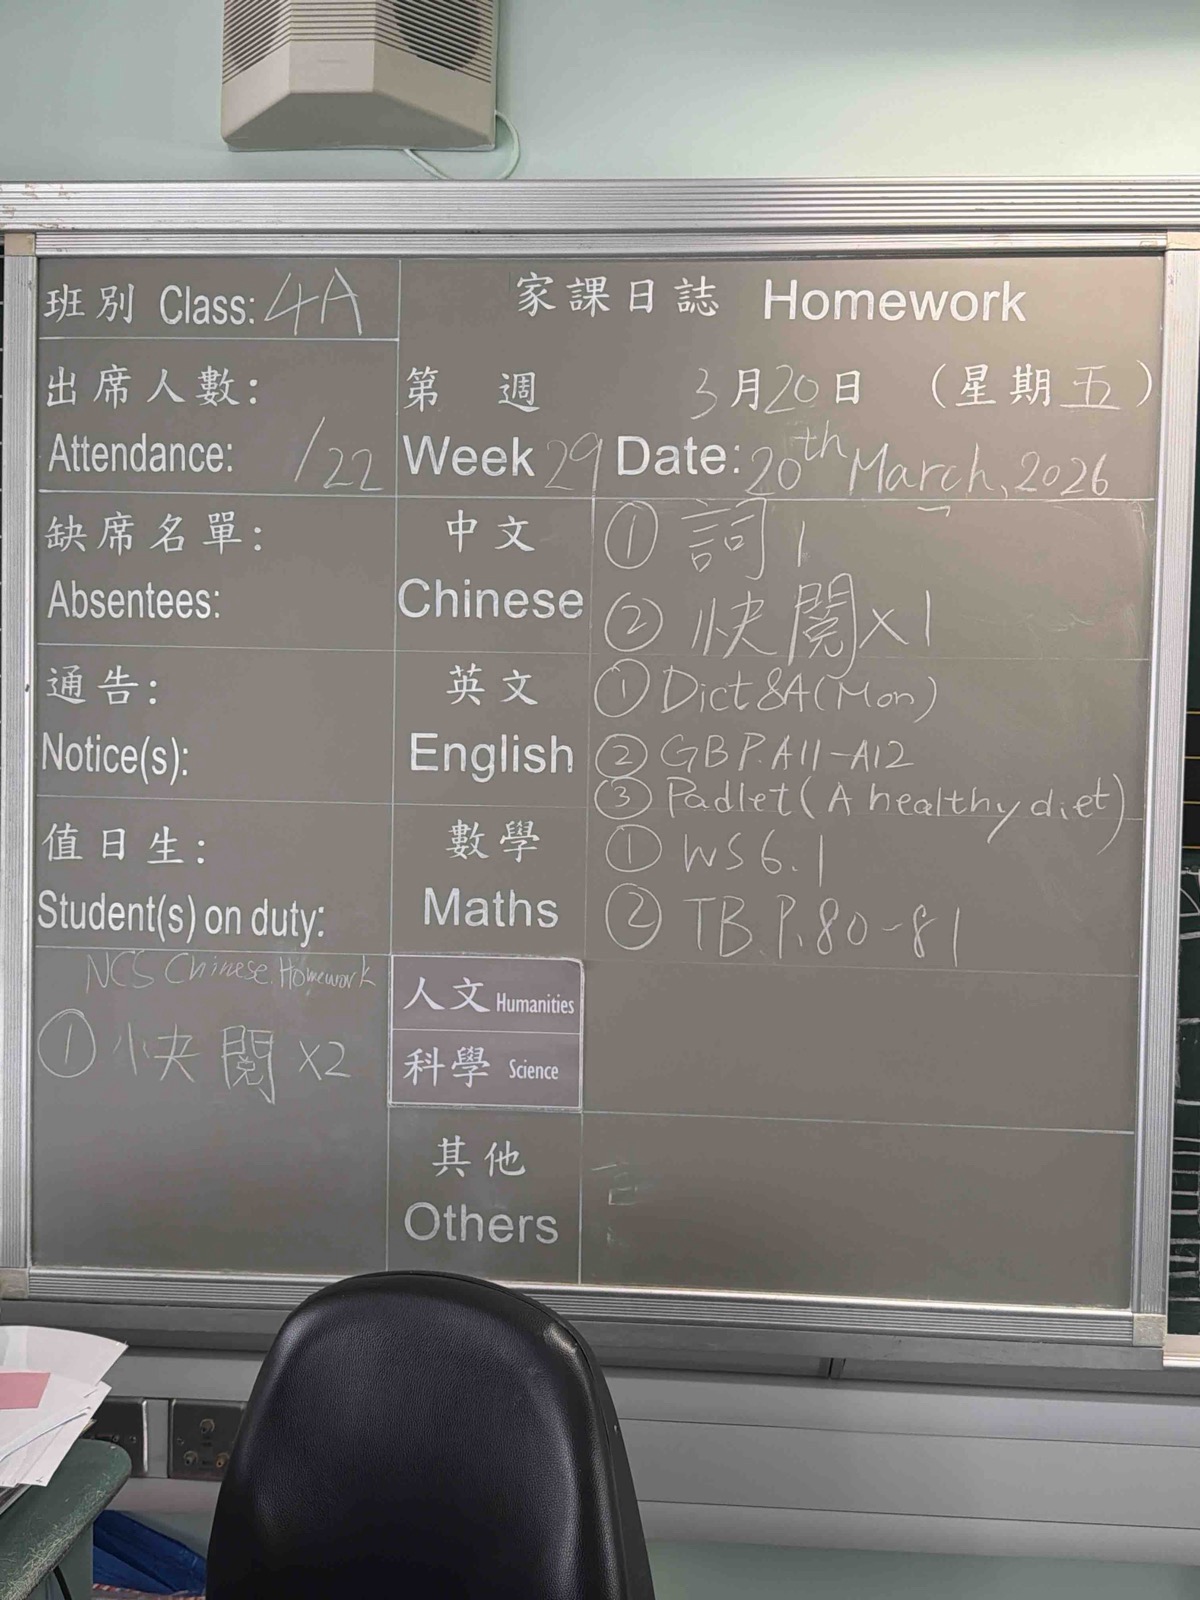 班別 Class: 4A
家課日誌 Homework
出席人數:
Attendance: /22
第 週 3月20日 (星期五)
Week 29 Date: 20th March, 2026
缺席名單:
Absentees:
中文
Chinese
① 詞1
② 快閱x1
通告:
Notice(s):
英文
English
① Dict8A(Mon)
② GB P.A11-A12
③ Padlet (A healthy diet)
值日生:
Student(s) on duty:
數學
Maths
① WS6.1
② TB.P.80-81
NCS Chinese Homework
① 快閱 x2
人文 Humanities
科學 Science
其他
Others